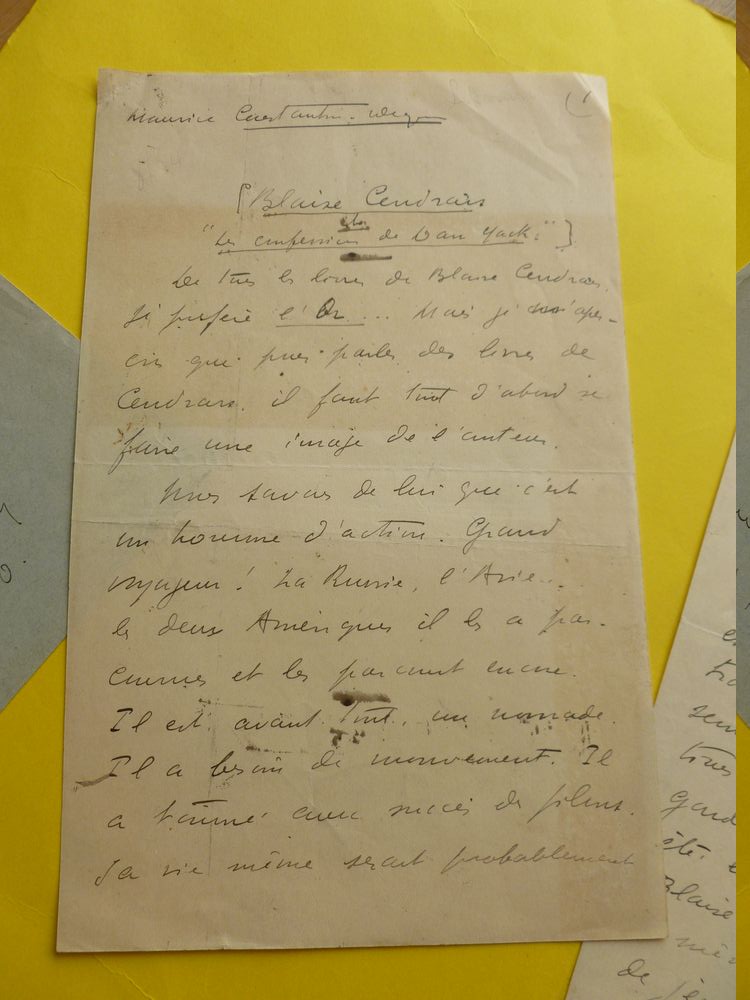 Maurice Constantin-Weyer
(1
[Blaise Cendrars
"Les confessions de Dan Yack."]
De tous les livres de Blaise Cendrars,
je préfère l'Or... Mais je m'aper-
çois que pour parler des livres de
Cendrars, il faut tout d'abord se
faire une image de l'auteur.
Nous savons de lui que c'est
un homme d'action. Grand
voyageur! La Russie, l'Asie...
les deux Amériques il les a par-
courues et les parcourt encore.
Il est, avant tout, un nomade.
Il a besoin de mouvement. Il
a tourné avec succès des films.
Sa vie même serait probablement
Blaise
de